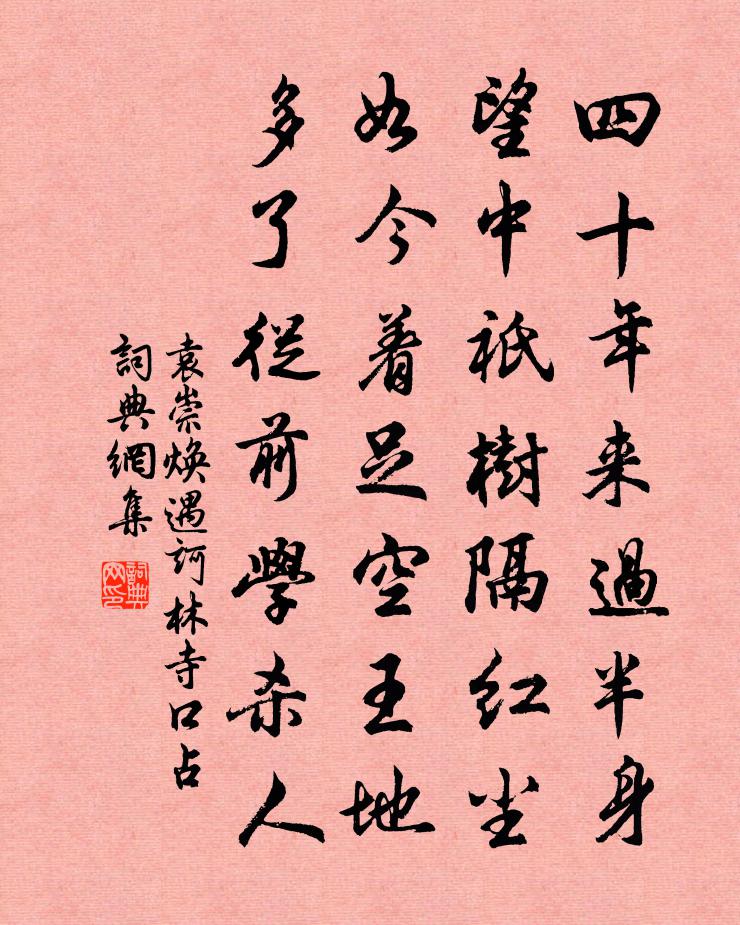 四十年来過半身
望中祇樹隔红尘
如今着足空王地
多了從前學杀人
袁崇煥遇訶林寺口占
詞典網集
詞典网印